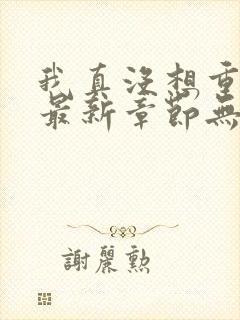 我真沒想重
最新章節無
謝麗勲